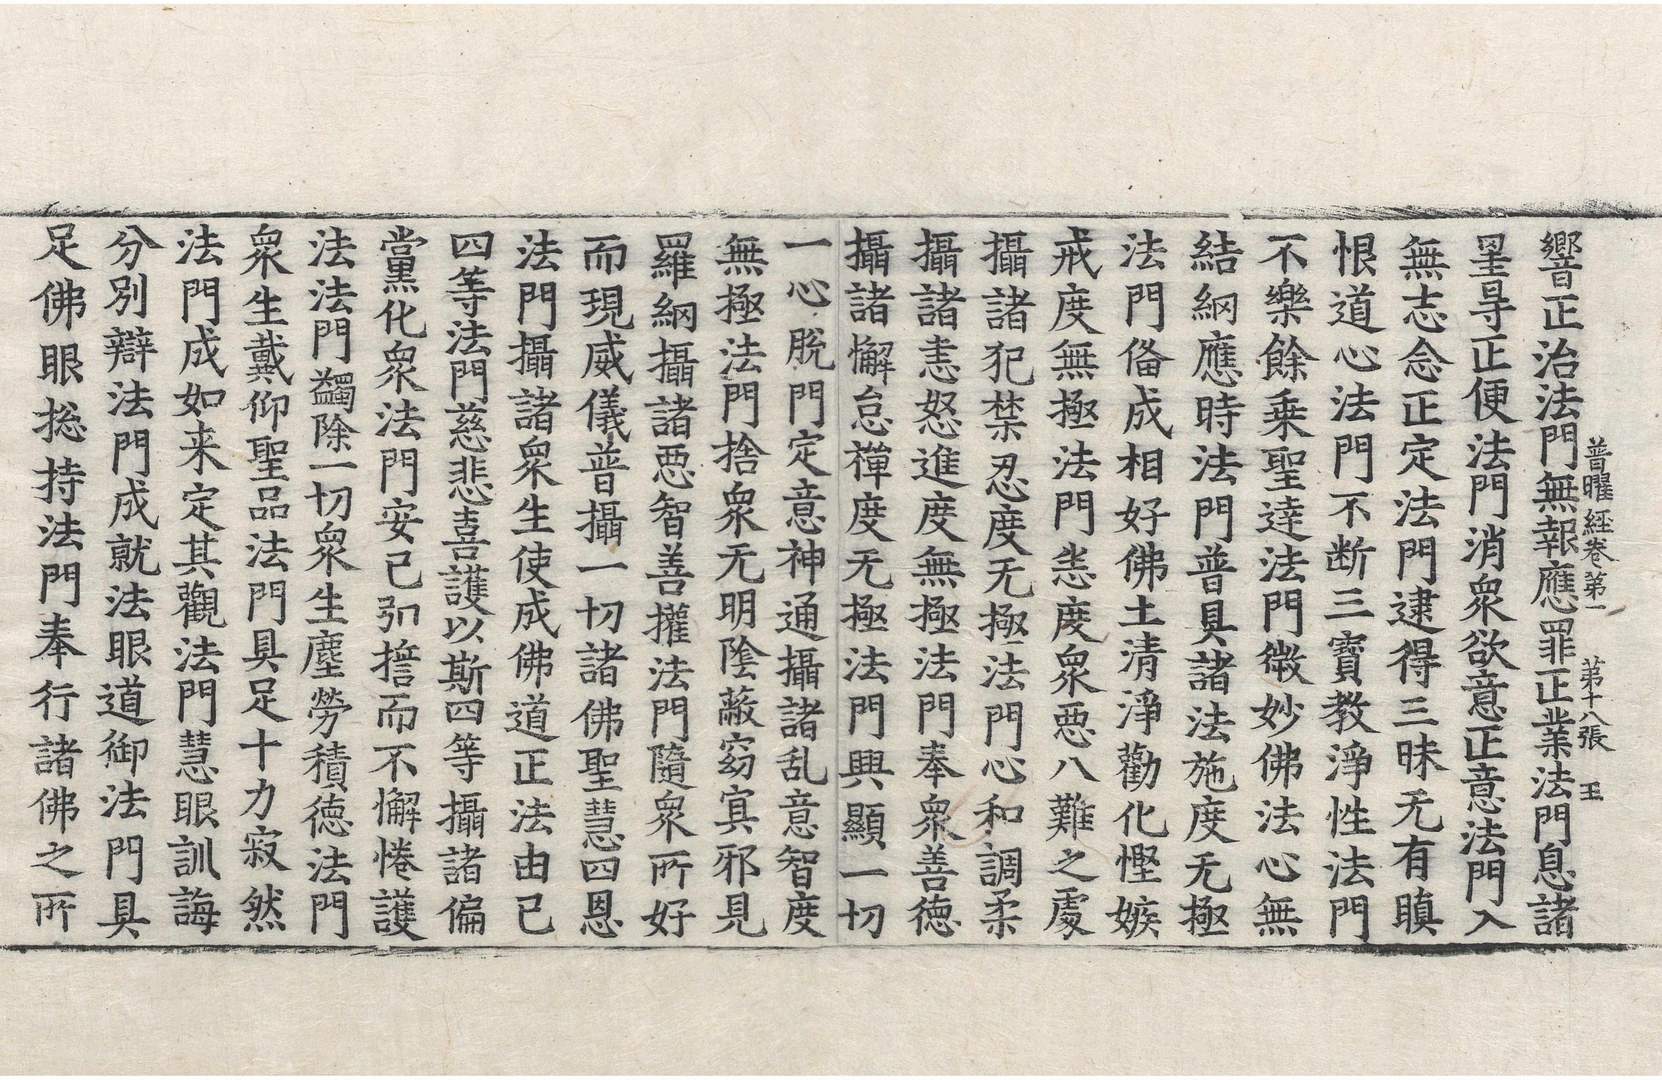 普曜經卷第一　第十八張　王
響正治法門無報應罪正業法門息諸
墨㝵正便法門消衆欲意正意法門入
無志念正定法門逮得三昧无有瞋
恨道心法門不断三寶教淨性法門
不樂餘乗聖達法門微妙佛法心無
結網應時法門普具諸法施度无極
法門俻成相好佛土清淨勸化慳嫉
戒度無極法門恚度衆惡八難之處
攝諸犯禁忍度无極法門心和調柔
攝諸恚怒進度無極法門奉衆善德
攝諸懈怠禪度无極法門興顯一切
一心脫門定意神通攝諸乱意智度
無極法門捨衆无明陰蔽窈冥邪見
羅網攝諸惡智善權法門隨衆所好
而現威儀普攝一切諸佛聖慧四恩
法門攝諸衆生使成佛道正法由已
四等法門慈悲喜護以斯四等攝諸偏
黨化衆法門安已弘誓而不懈惓護
法法門蠲除一切衆生塵勞積德法門
衆生戴仰聖品法門具足十力寂然
法門成如来定其觀法門慧眼訓誨
分別辯法門成就法眼道御法門具
足佛眼捴持法門奉行諸佛之所